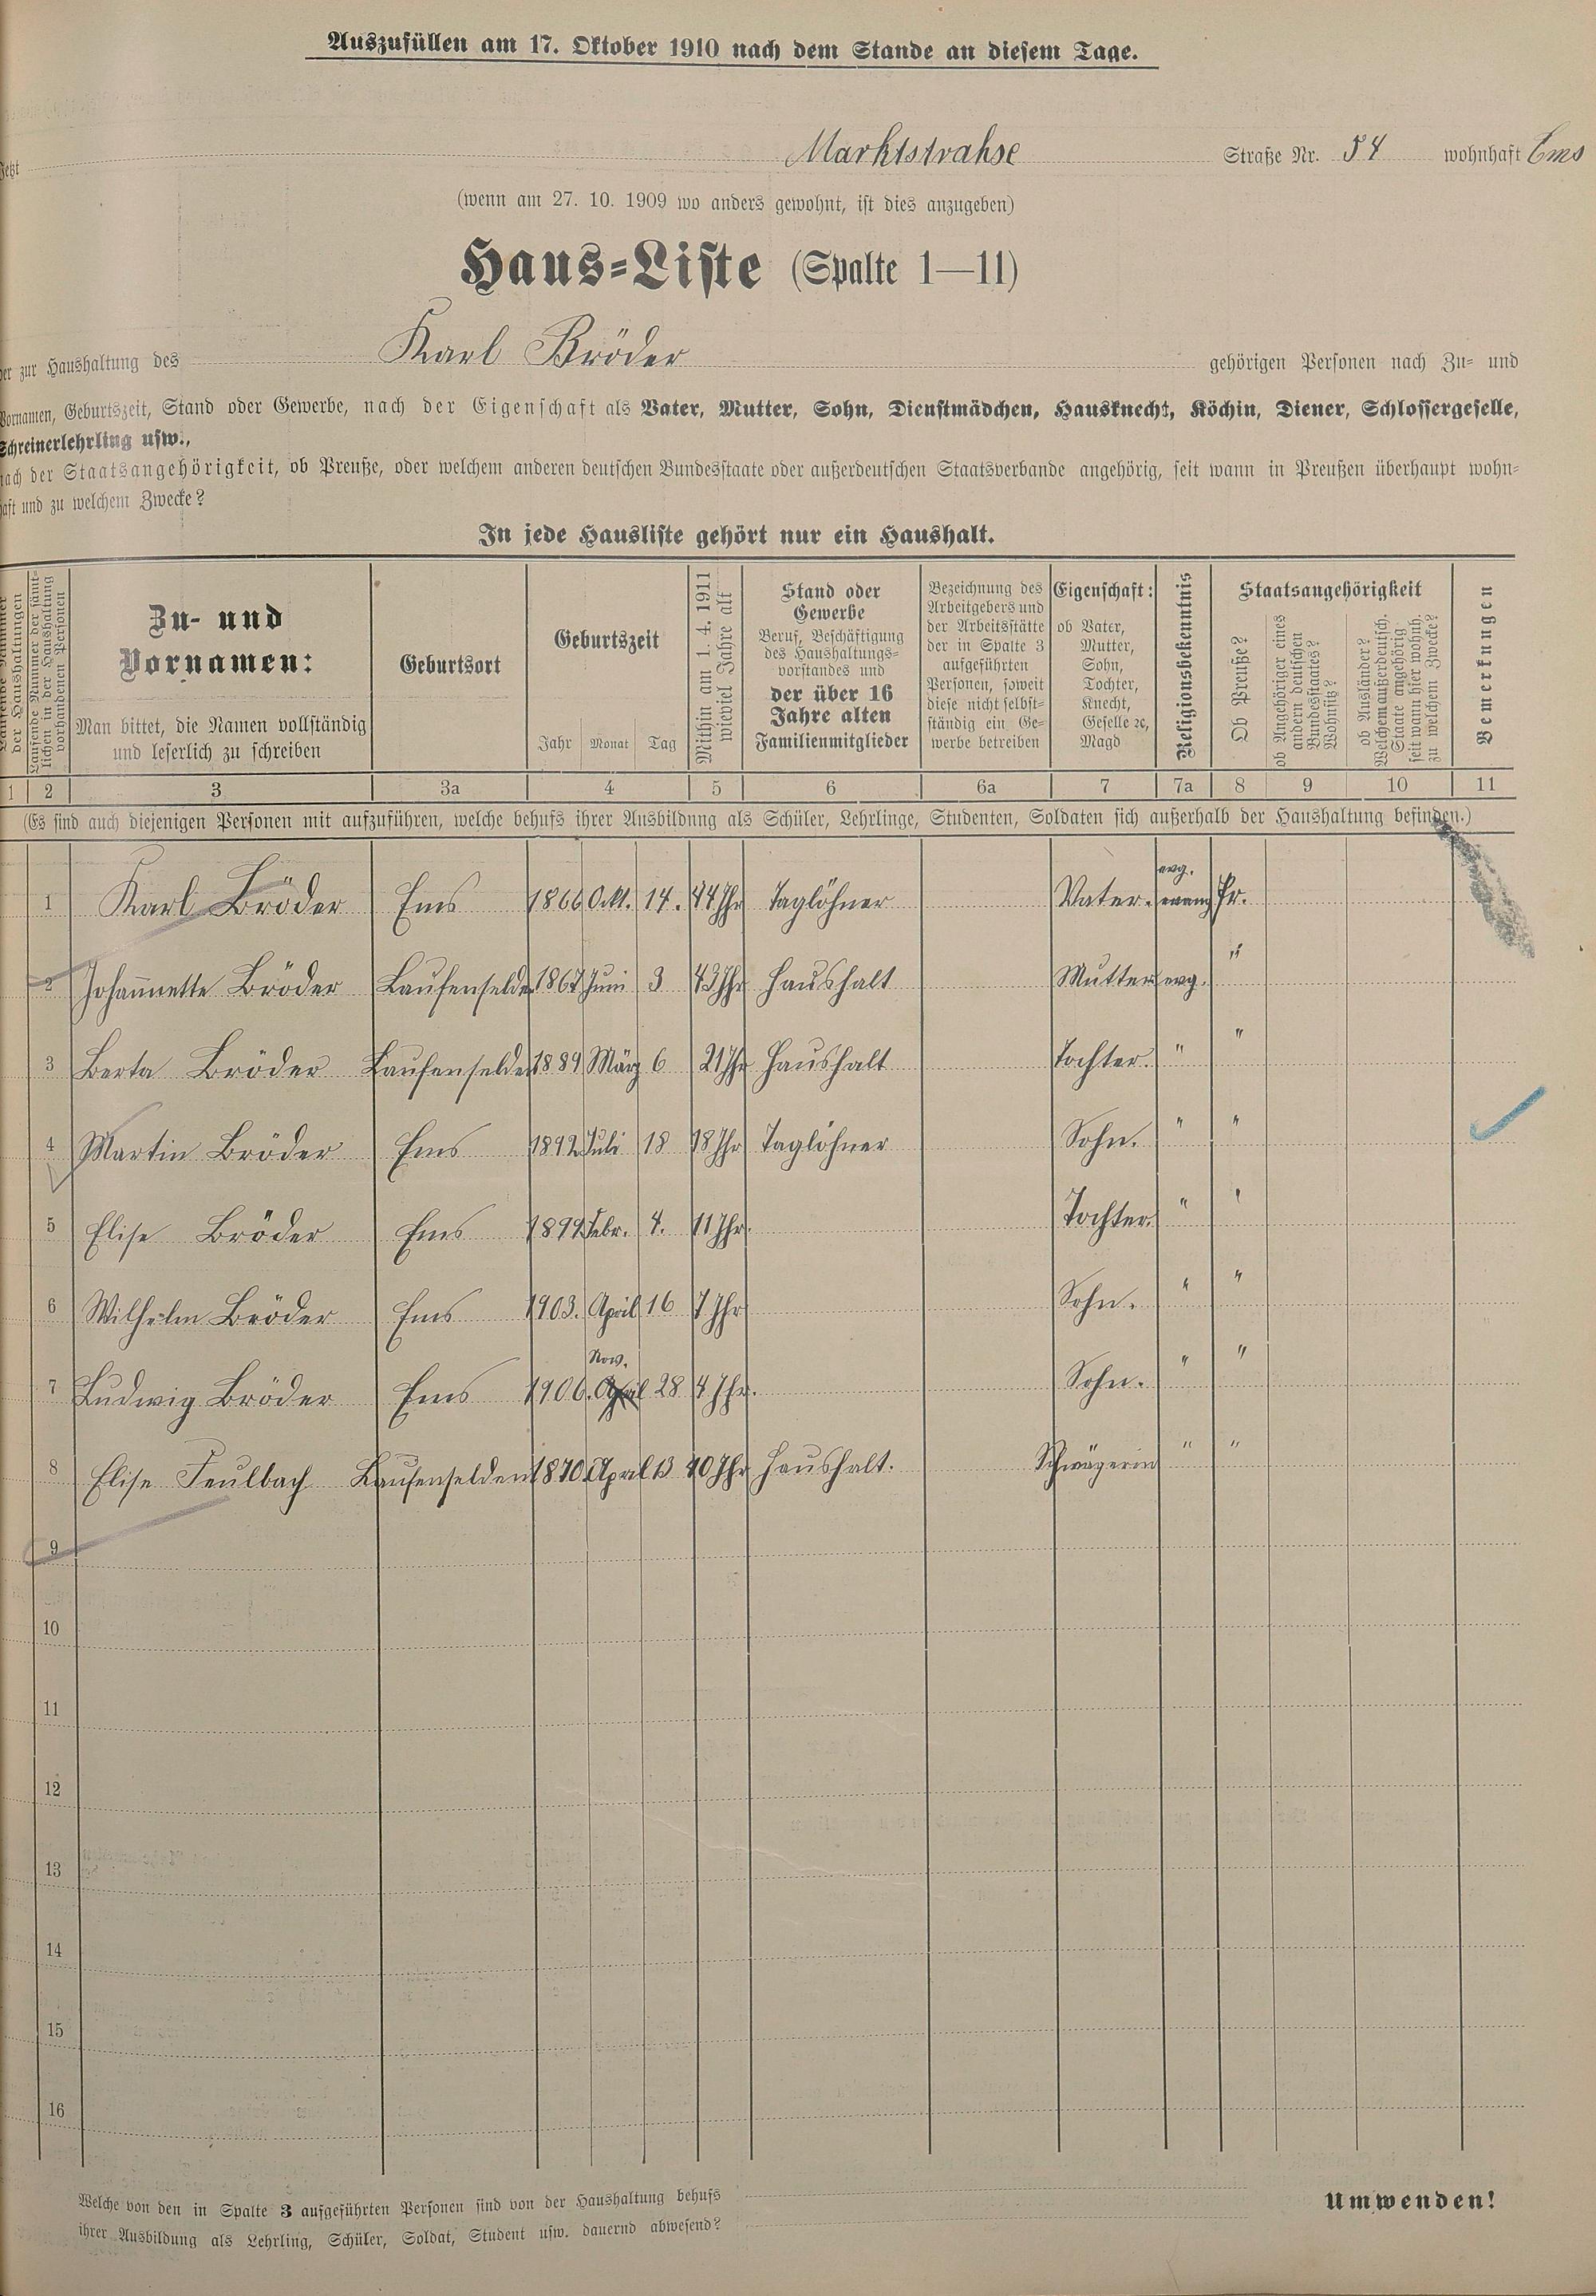 Auszufüllen am 17. Oktober 1910 nach dem Stande an diesem Tage.
Jetzt Marktstrahse Straße Nr. 54 wohnhaft Ems
(wenn am 27. 10. 1909 wo anders gewohnt, ist dies anzugeben)
Haus=Liste (Spalte 1—11)
der zur Haushaltung des Karl Bröder gehörigen Personen nach Zu= und
Vornamen, Geburtszeit, Stand oder Gewerbe, nach der Eigenschaft als Vater, Mutter, Sohn, Dienstmädchen, Hausknecht, Köchin, Diener, Schlossergeselle,
Schreinerlehrling usw.,
nach der Staatsangehörigkeit, ob Preuße, oder welchem anderen deutschen Bundesstaate oder außerdeutschen Staatsverbande angehörig, seit wann in Preußen überhaupt wohn=
haft und zu welchem Zwecke?
In jede Hausliste gehört nur ein Haushalt.
Laufende Nummer der Haushaltungen
Laufende Nummer der sämt=
lichen in der Haushaltung
vorhandenen Personen
Zu- und
Vornamen:
Man bittet, die Namen vollständig
und leserlich zu schreiben
Geburtsort
Geburtszeit
Jahr Monat Tag
Mithin am 1. 4. 1911
wieviel Jahre alt
Stand oder
Gewerbe
Beruf, Beschäftigung
des Haushaltungs=
vorstandes und
der über 16
Jahre alten
Familienmitglieder
Bezeichnung des
Arbeitgebers und
der Arbeitsstätte
der in Spalte 3
aufgeführten
Personen, soweit
diese nicht selbst=
ständig ein Ge=
werbe betreiben
Eigenschaft:
ob Vater,
Mutter,
Sohn,
Tochter,
Knecht,
Geselle ꝛc,
Magd
Religionsbekenntnis
Staatsangehörigkeit
Ob Preuße?
ob Angehöriger eines
andern deutschen
Bundesstaates?
Wohnsitz?
ob Ausländer?
Welchem außerdeutsch.
Staate angehörig
seit wann hier wohnh.
zu welchem Zwecke?
Bemerkungen
1 2 3 3a 4 5 6 6a 7 7a 8 9 10 11
(Es sind auch diejenigen Personen mit aufzuführen, welche behufs ihrer Ausbildung als Schüler, Lehrlinge, Studenten, Soldaten sich außerhalb der Haushaltung befinden.)
evg.
1 Karl Bröder Ems 1866 Okt. 14. 44 Jhr Taglöhner Vater. evang Pr.
2 Johannette Bröder Laufenselden 1867 Juni 3 43 Jhr Haushalt Mutter evg. "
3 Berta Bröder Laufenselden 1889 März 6 21 Jhr Haushalt Tochter. " "
4 Martin Bröder Ems 1892 Juli 18 18 Jhr Taglöhner Sohn. " "
5 Elise Bröder Ems 1899 Febr. 4. 11 Jhr. Tochter. " "
6 Wilhelm Bröder Ems 1903. April 16 7 Jhr Sohn. " "
Nov.
7 Ludwig Bröder Ems 1906. April 28 4 Jhr. Sohn. " "
8 Elise Feulbach Laufenselden 1870 April 13 40 Jhr Haushalt. Schwägerin " "
9
10
11
12
13
14
15
16
Welche von den in Spalte 3 aufgeführten Personen sind von der Haushaltung behufs
ihrer Ausbildung als Lehrling, Schüler, Soldat, Student usw. dauernd abwesend?
Umwenden!